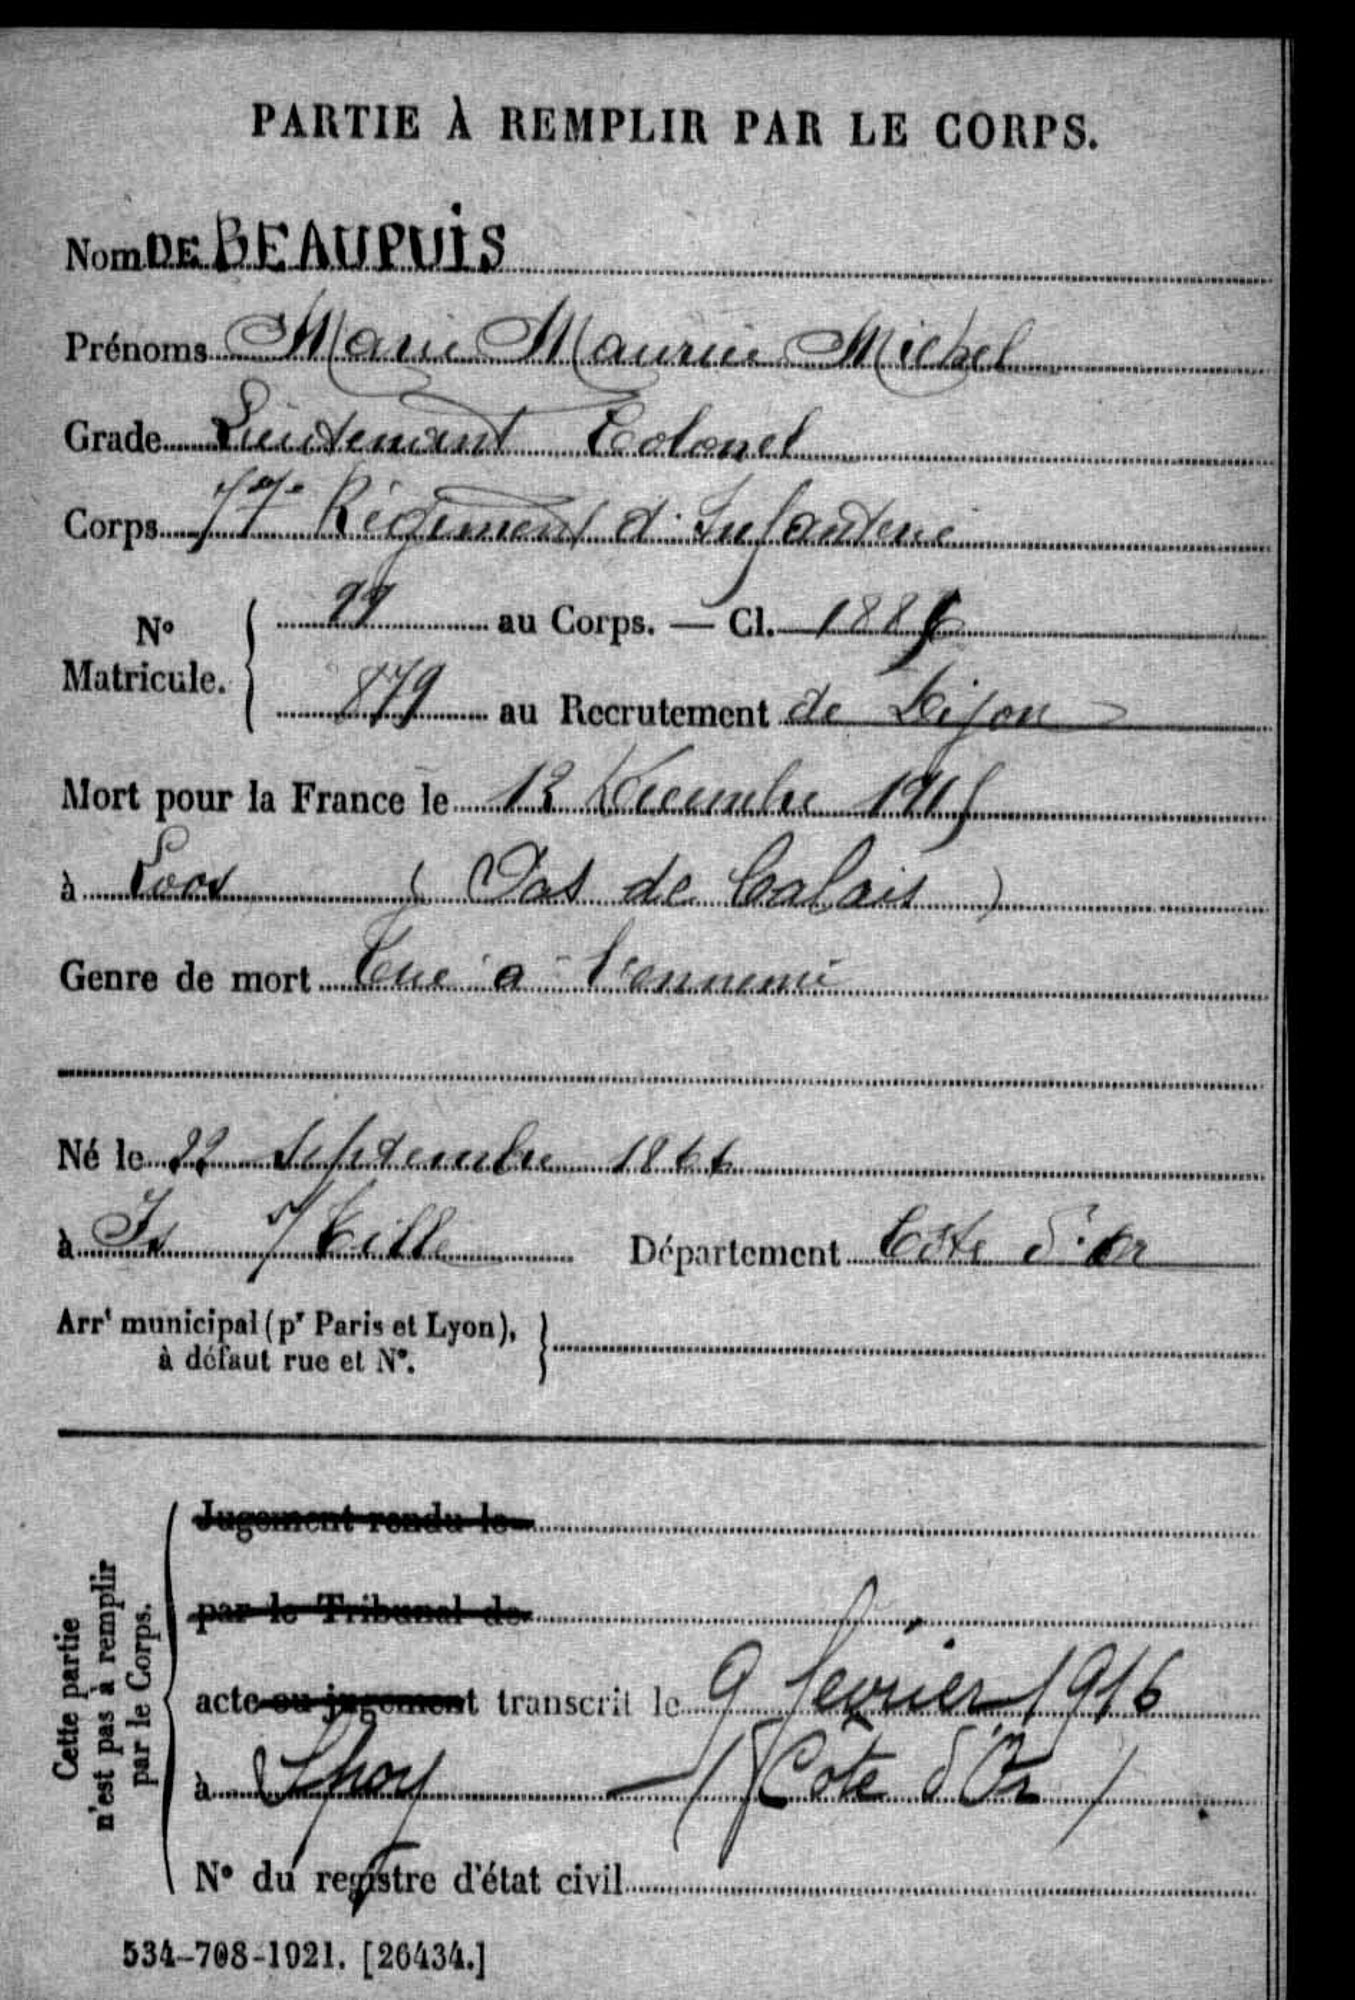 PARTIE À REMPLIR PAR LE CORPS.
Nom DE BEAUPUIS
Prénoms Marie Maurice Michel
Grade Lieutenant Colonel
Corps Régiment d'Infanterie
N° Matricule. au Corps. — Cl. 1886
879 au Recrutement de Dijon
Mort pour la France le Décembre 1915
à Loos (Pas de Calais)
Genre de mort Tué à l'ennemi
Né le 22 Septembre 1866
à Is s/ Tille Département Côte d'Or
Arrt municipal (pr Paris et Lyon),
à défaut rue et N°.
Cette partie
n'est pas à remplir
par le Corps.
Jugement rendu le
par le Tribunal de
acte ou jugement transcrit le 9 février 1916
à Spoy (Côte d'Or)
N° du registre d'état civil
534-708-1921. [26434.]